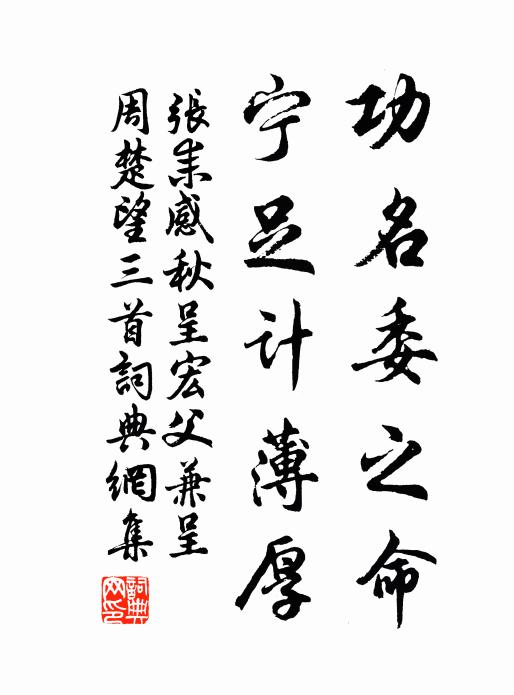 功名委之命
宁足计薄厚
張耒感秋呈宏父兼呈
周楚望三首詞典網集
詞典网印